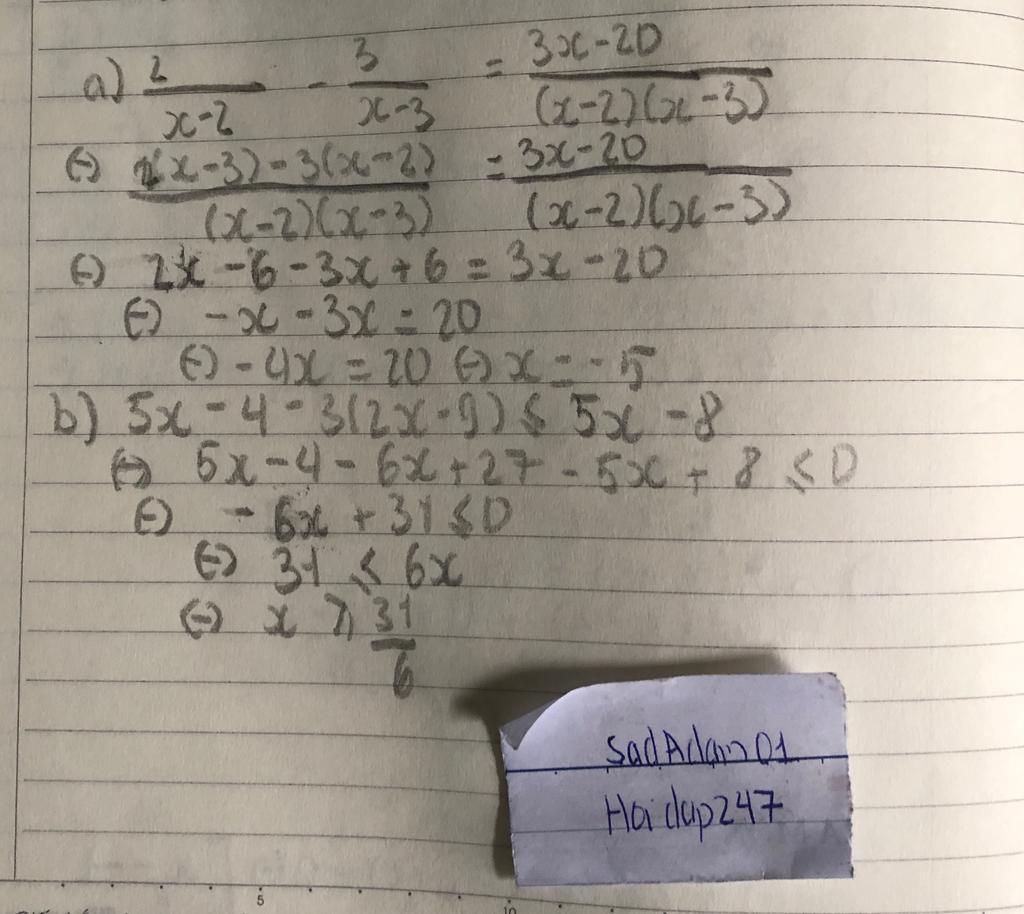 a) 2/(x-2) - 3/(x-3) = (3x-20)/((x-2)(x-3))
(-) (2(x-3)-3(x-2))/((x-2)(x-3)) = (3x-20)/((x-2)(x-3))
(-) 2x - 6 - 3x + 6 = 3x - 20
(-) -x - 3x = 20
(-) -4x = 20 (-) x = -5
b) 5x - 4 - 3(2x-9) ≤ 5x - 8
(-) 5x - 4 - 6x + 27 - 5x + 8 ≤ 0
(-) - 6x + 31 ≤ 0
(-) 31 ≤ 6x
(-) x ≥ 31/6
SadAdam01
Hoidap247
5
10